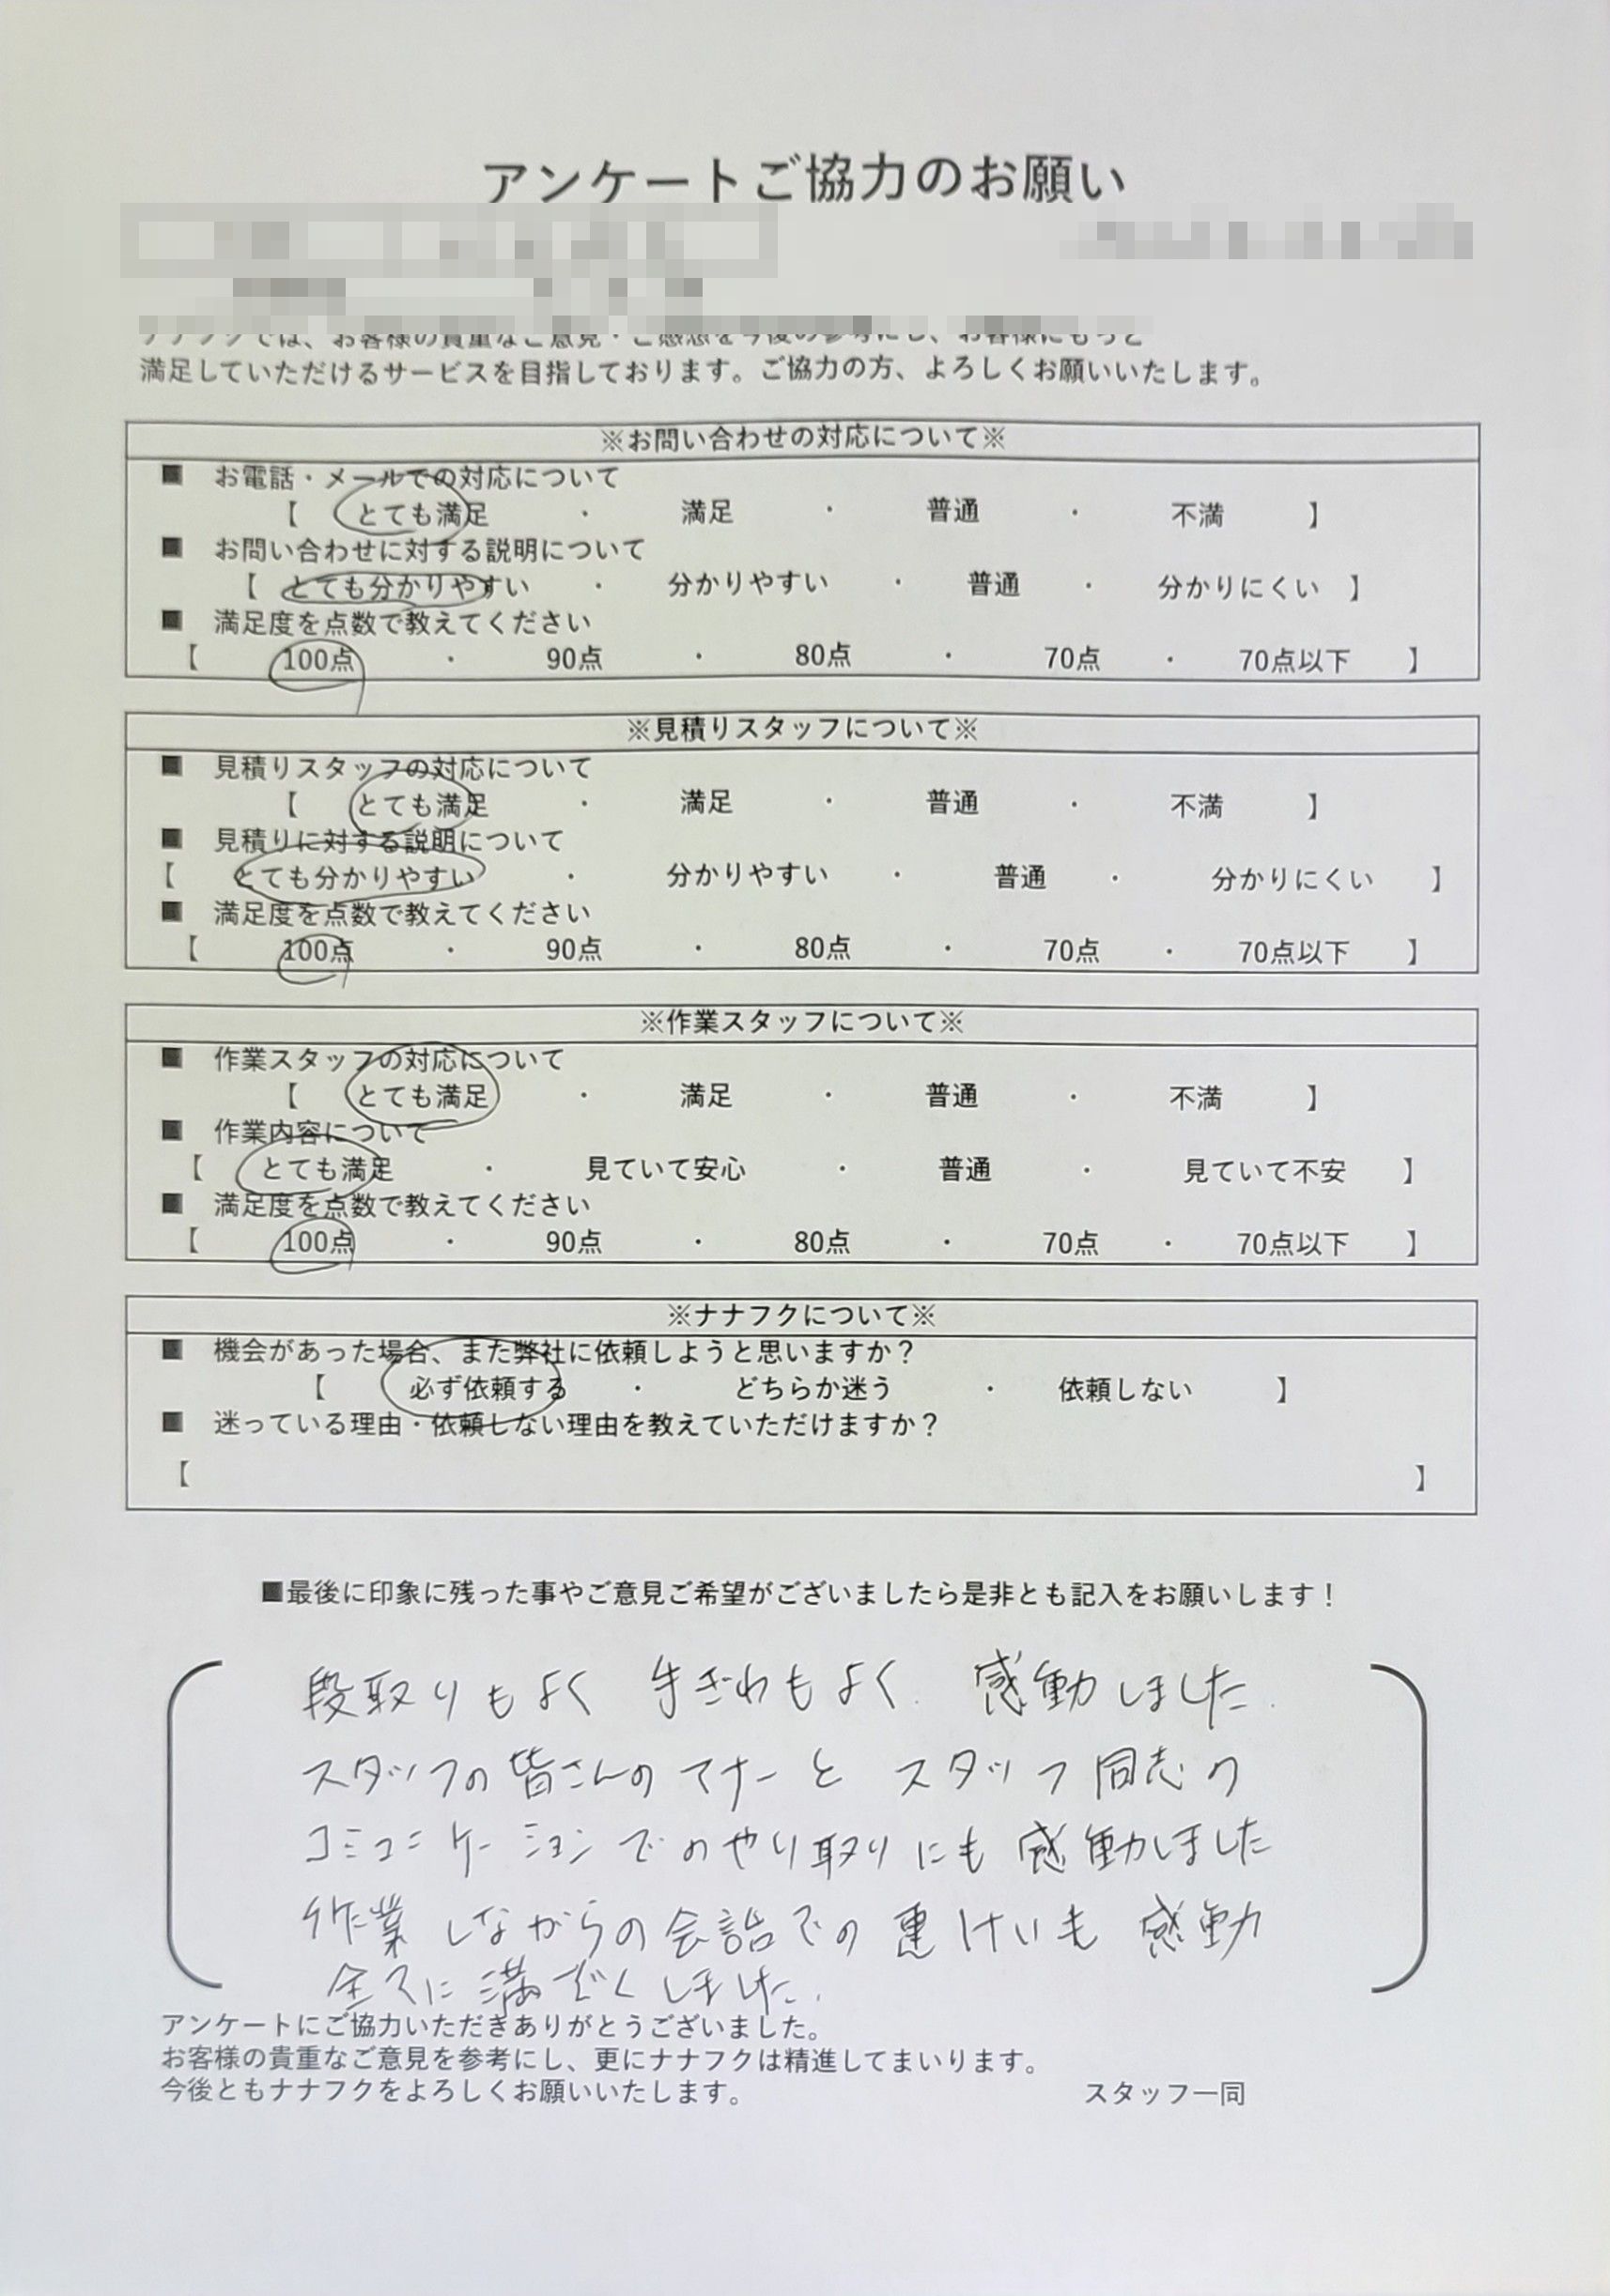 アンケートご協力のお願い
ナナフクでは、お客様の貴重なご意見・ご感想を今後の参考にし、お客様にもっと
満足していただけるサービスを目指しております。ご協力の方、よろしくお願いいたします。
※お問い合わせの対応について※
■ お電話・メールでの対応について
【 とても満足 ・ 満足 ・ 普通 ・ 不満 】
■ お問い合わせに対する説明について
【 とても分かりやすい ・ 分かりやすい ・ 普通 ・ 分かりにくい 】
■ 満足度を点数で教えてください
【 100点 ・ 90点 ・ 80点 ・ 70点 ・ 70点以下 】
※見積りスタッフについて※
■ 見積りスタッフの対応について
【 とても満足 ・ 満足 ・ 普通 ・ 不満 】
■ 見積りに対する説明について
【 とても分かりやすい ・ 分かりやすい ・ 普通 ・ 分かりにくい 】
■ 満足度を点数で教えてください
【 100点 ・ 90点 ・ 80点 ・ 70点 ・ 70点以下 】
※作業スタッフについて※
■ 作業スタッフの対応について
【 とても満足 ・ 満足 ・ 普通 ・ 不満 】
■ 作業内容について
【 とても満足 ・ 見ていて安心 ・ 普通 ・ 見ていて不安 】
■ 満足度を点数で教えてください
【 100点 ・ 90点 ・ 80点 ・ 70点 ・ 70点以下 】
※ナナフクについて※
■ 機会があった場合、また弊社に依頼しようと思いますか？
【 必ず依頼する ・ どちらか迷う ・ 依頼しない 】
■ 迷っている理由・依頼しない理由を教えていただけますか？
【 】
■最後に印象に残った事やご意見ご希望がございましたら是非とも記入をお願いします！
段取りもよく 手ぎわもよく. 感動しました.
スタッフの皆さんのマナーと スタッフ同志の
コミュニケーションでのやり取りにも感動しました
作業しながらの会話での 恵けいも 感動
全てに満ぞくしました.
アンケートにご協力いただきありがとうございました。
お客様の貴重なご意見を参考にし、更にナナフクは精進してまいります。
今後ともナナフクをよろしくお願いいたします。 スタッフ一同